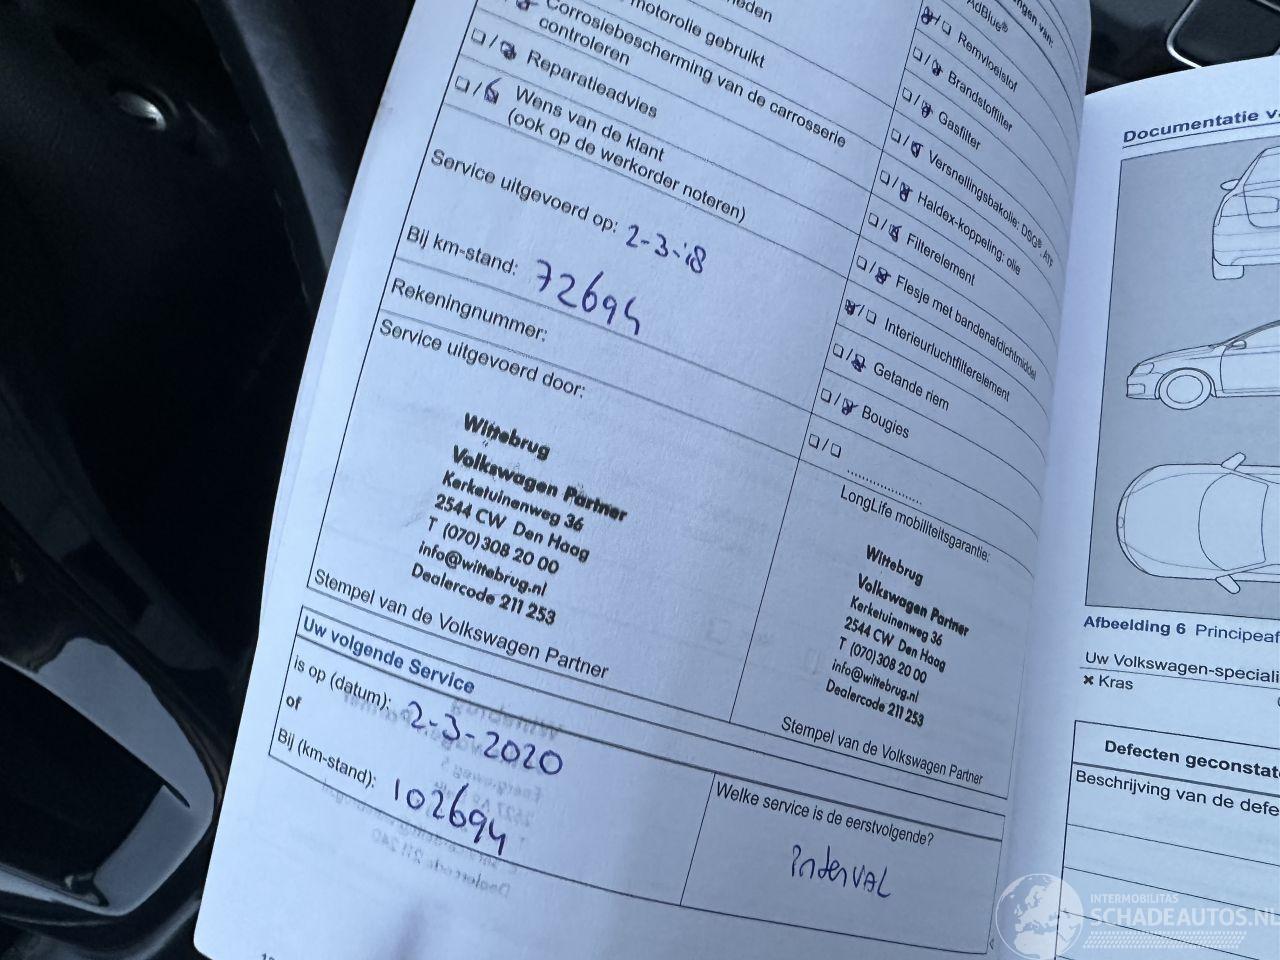 motorolie gebruikt
Corrosiebescherming van de carrosserie
controleren
Reparatieadvies
Wens van de klant
(ook op de werkorder noteren)
Service uitgevoerd op: 2-3-'18
Bij km-stand: 72694
Rekeningnummer:
Service uitgevoerd door:
Wittebrug
Volkswagen Partner
Kerketuinenweg 36
2544 CW Den Haag
T (070) 308 20 00
info@wittebrug.nl
Dealercode 211 253
Stempel van de Volkswagen Partner
AdBlue®
Remvloeistof
Brandstoffilter
Gasfilter
Versnellingsbakolie: DSG®, ATF
Haldex-koppeling: olie
Filterelement
Flesje met bandenafdichtmiddel
Interieurluchtfilterelement
Getande riem
Bougies
....................
LongLife mobiliteitsgarantie:
Wittebrug
Volkswagen Partner
Kerketuinenweg 36
2544 CW Den Haag
T (070) 308 20 00
info@wittebrug.nl
Dealercode 211 253
Stempel van de Volkswagen Partner
Uw volgende Service
is op (datum): 2-3-2020
of
Bij (km-stand): 102694
Welke service is de eerstvolgende?
interval
Documentatie
Afbeelding 6
Uw Volkswagen-speciali
× Kras
Defecten geconstate
Beschrijving van de defe
INTERMOBILITAS
SCHADEAUTOS.NL